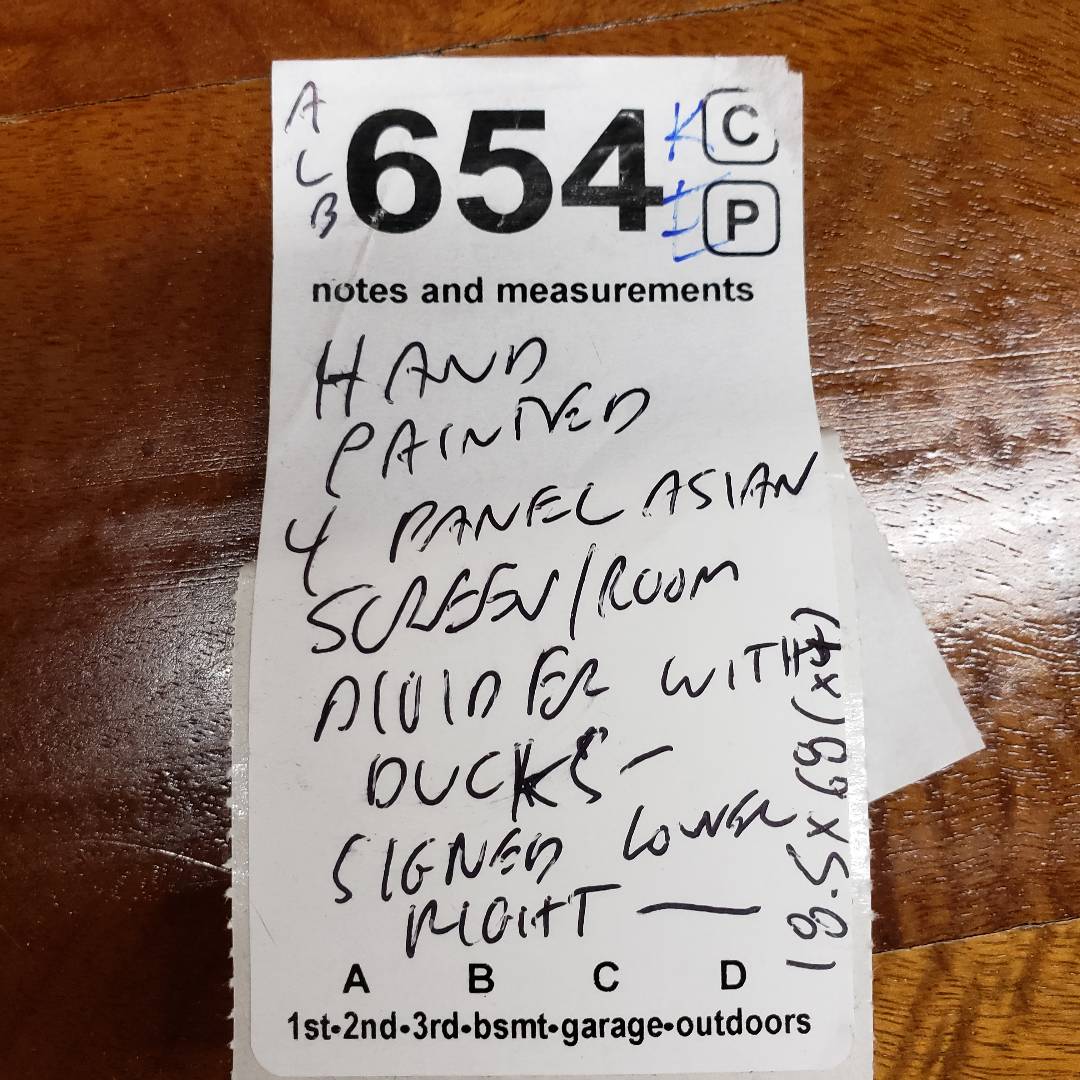 A
L
B
654
K
C
P
notes and measurements
HAND
PAINTED
4 PANEL ASIAN
SCREEN/ROOM
DIVIDER WITH
DUCKS -
SIGNED LOWER
RIGHT —
18.5 x 69 (x4)
A B C D
1st•2nd•3rd•bsmt•garage•outdoors